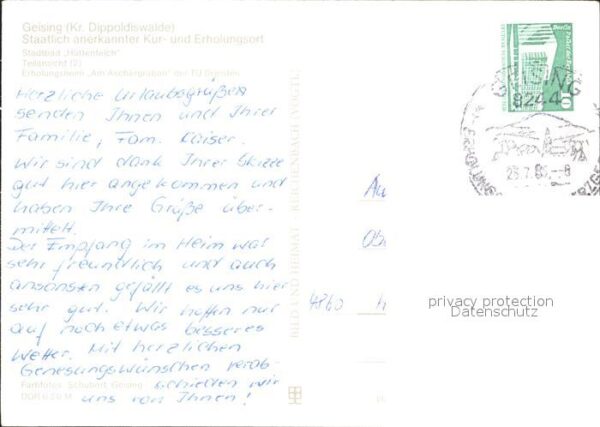 Geising (Kr. Dippoldiswalde)
Staatlich anerkannter Kur- und Erholungsort
Stadtbad „Hüttenteich“
Teilansicht (2)
Erholungsheim „Am Aschergraben“ der TU Dresden
Herzliche Urlaubsgrüße
senden Ihnen und Ihrer
Familie, Fam. Kaiser.
Wir sind dank Ihrer Skizze
gut hier angekommen und
haben Ihre Grüße über-
mittelt.
Der Empfang im Heim war
sehr freundlich und auch
ansonsten gefällt es uns hier
sehr gut. Wir hoffen nur
auf noch etwas besseres
Wetter. Mit herzlichen
Genesungswünschen verab-
schieden wir
uns von Ihnen!
Farbfotos Schubert, Geising
DDR 0,20 M
BILD UND HEIMAT REICHENBACH (VOGTL.)
4860
Berlin
10
GEISING
8244
privacy protection
Datenschutz